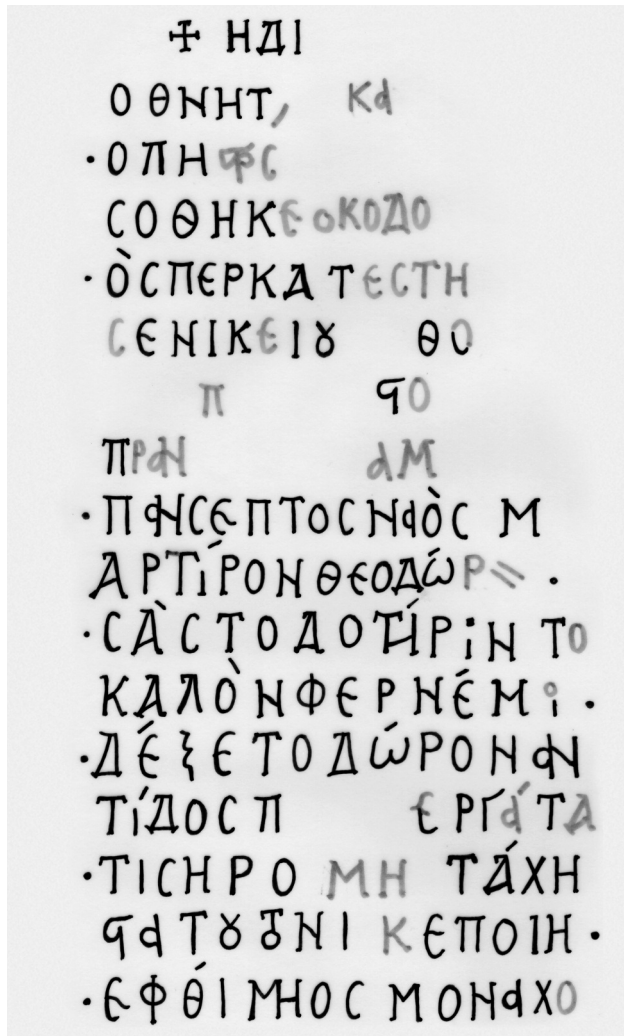 ✢ ΗΔΙ
Ο ΘΝΗΤ, Κα
·ΟΠΗΦС
СΟΘΗΚΕΟΚΟΔΟ
·ῸСΠΕΡΚΑΤΕСΤΗ
СΕΝΙΚΕΙȢ ΘΟ
Π ϤΟ
ΠΡαΝ αΜ
·ΠαΝСΕΠΤΟСΝαὸС Μ
ΑΡΤΊΡΟΝΘΕΟΔώΡ〃 ·
·СᾺСΤΟΔΟΤΊΡΙΝ ΤΟ
ΚΑΛῸΝΦΕΡΝΈΜΙ ·
·ΔΈξΕΤΟΔώΡΟΝαΝ
ΤΊΔΟСΠ ΕΡΓάΤΑ
·ΤΙСΗΡΟ ΜΗ ΤΆΧΗ
ΚΕΠΟΙΗ·
·ΕΦΘΊΜΗΟС ΜΟΝαΧΟ